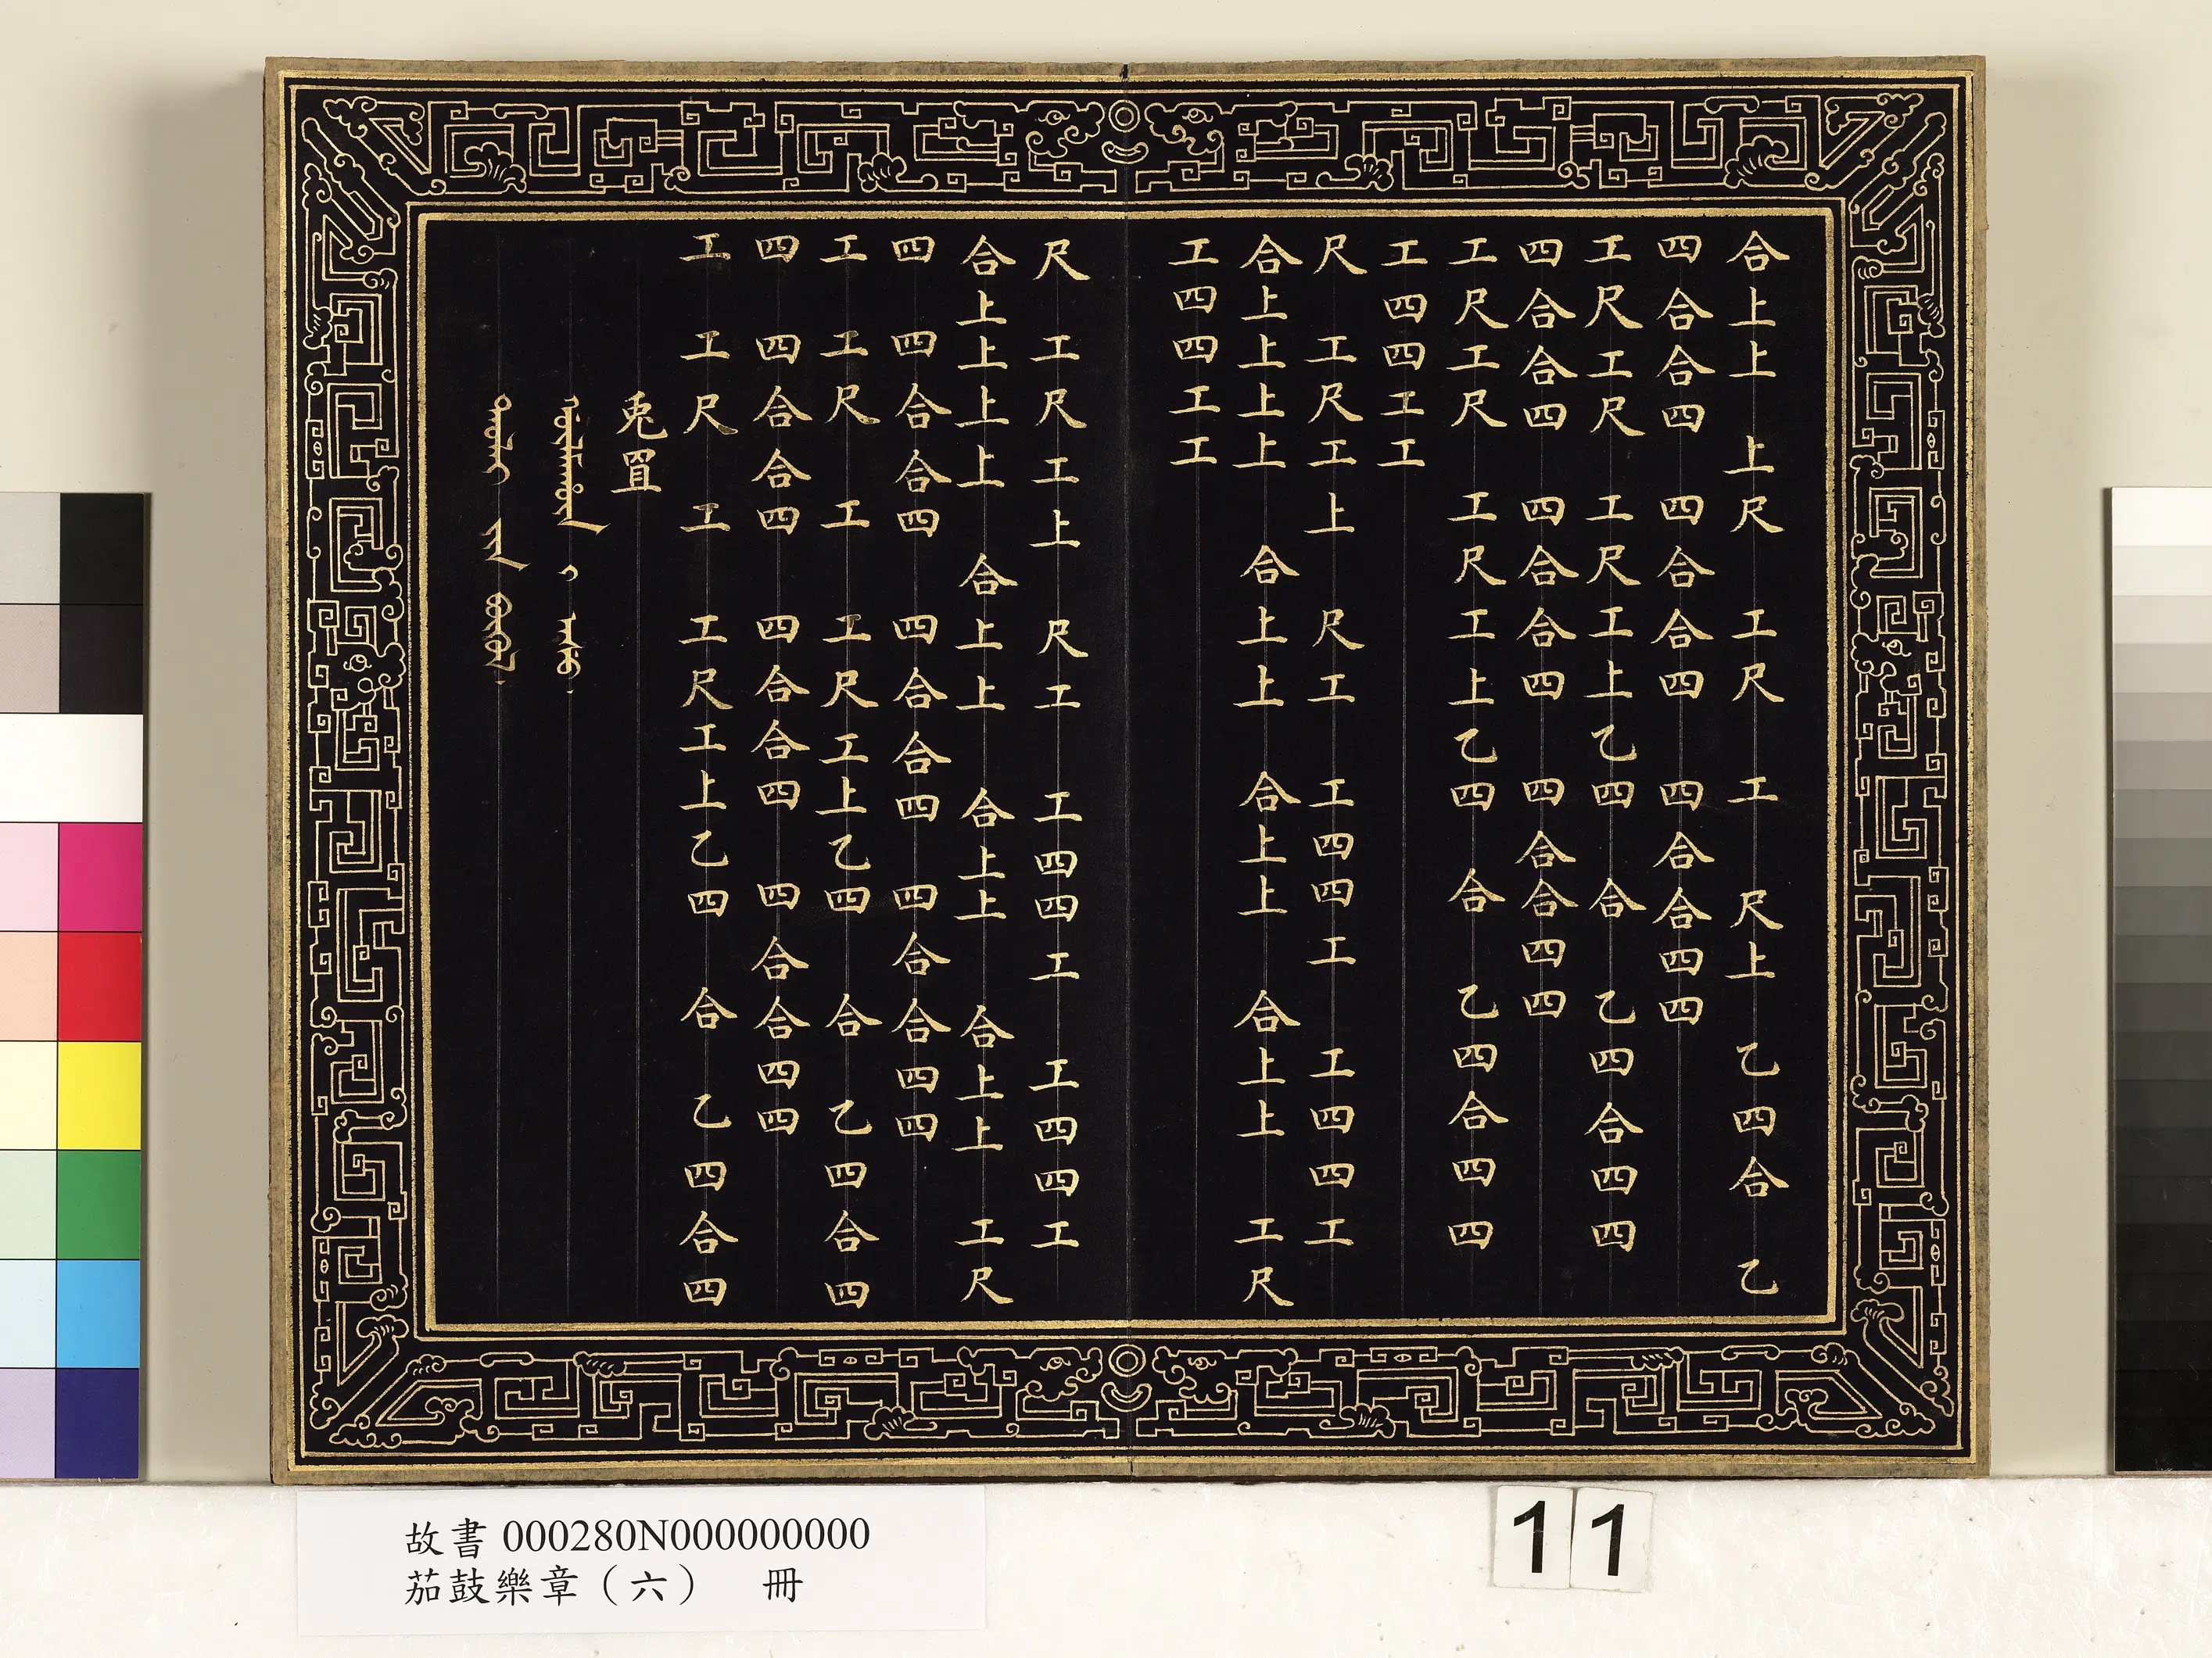 合上上 上尺 工尺 工 尺上 乙四合 乙
四合合四 四合合四 四合合四四
工尺工尺 工尺工上乙四 合 乙四合四四
四合合四 四合合四 四合合四四
工尺工尺 工尺工上乙四 合 乙四合四四
工四四工工
尺 工尺工上 尺工 工四四工 工四四工
合上上上上 合上上 合上上 合上上 工尺
工四四工工
尺 工尺工上 尺工 工四四工 工四四工
合上上上上 合上上 合上上 合上上 工尺
四 四合合四 四合合四 四合合四四
工 工尺 工 工尺工上乙四 合 乙四合四
四 四合合四 四合合四 四合合四四
工 工尺 工 工尺工上乙四 合 乙四合四
兎罝
故書 000280N000000000
茄鼓樂章（六） 冊
11